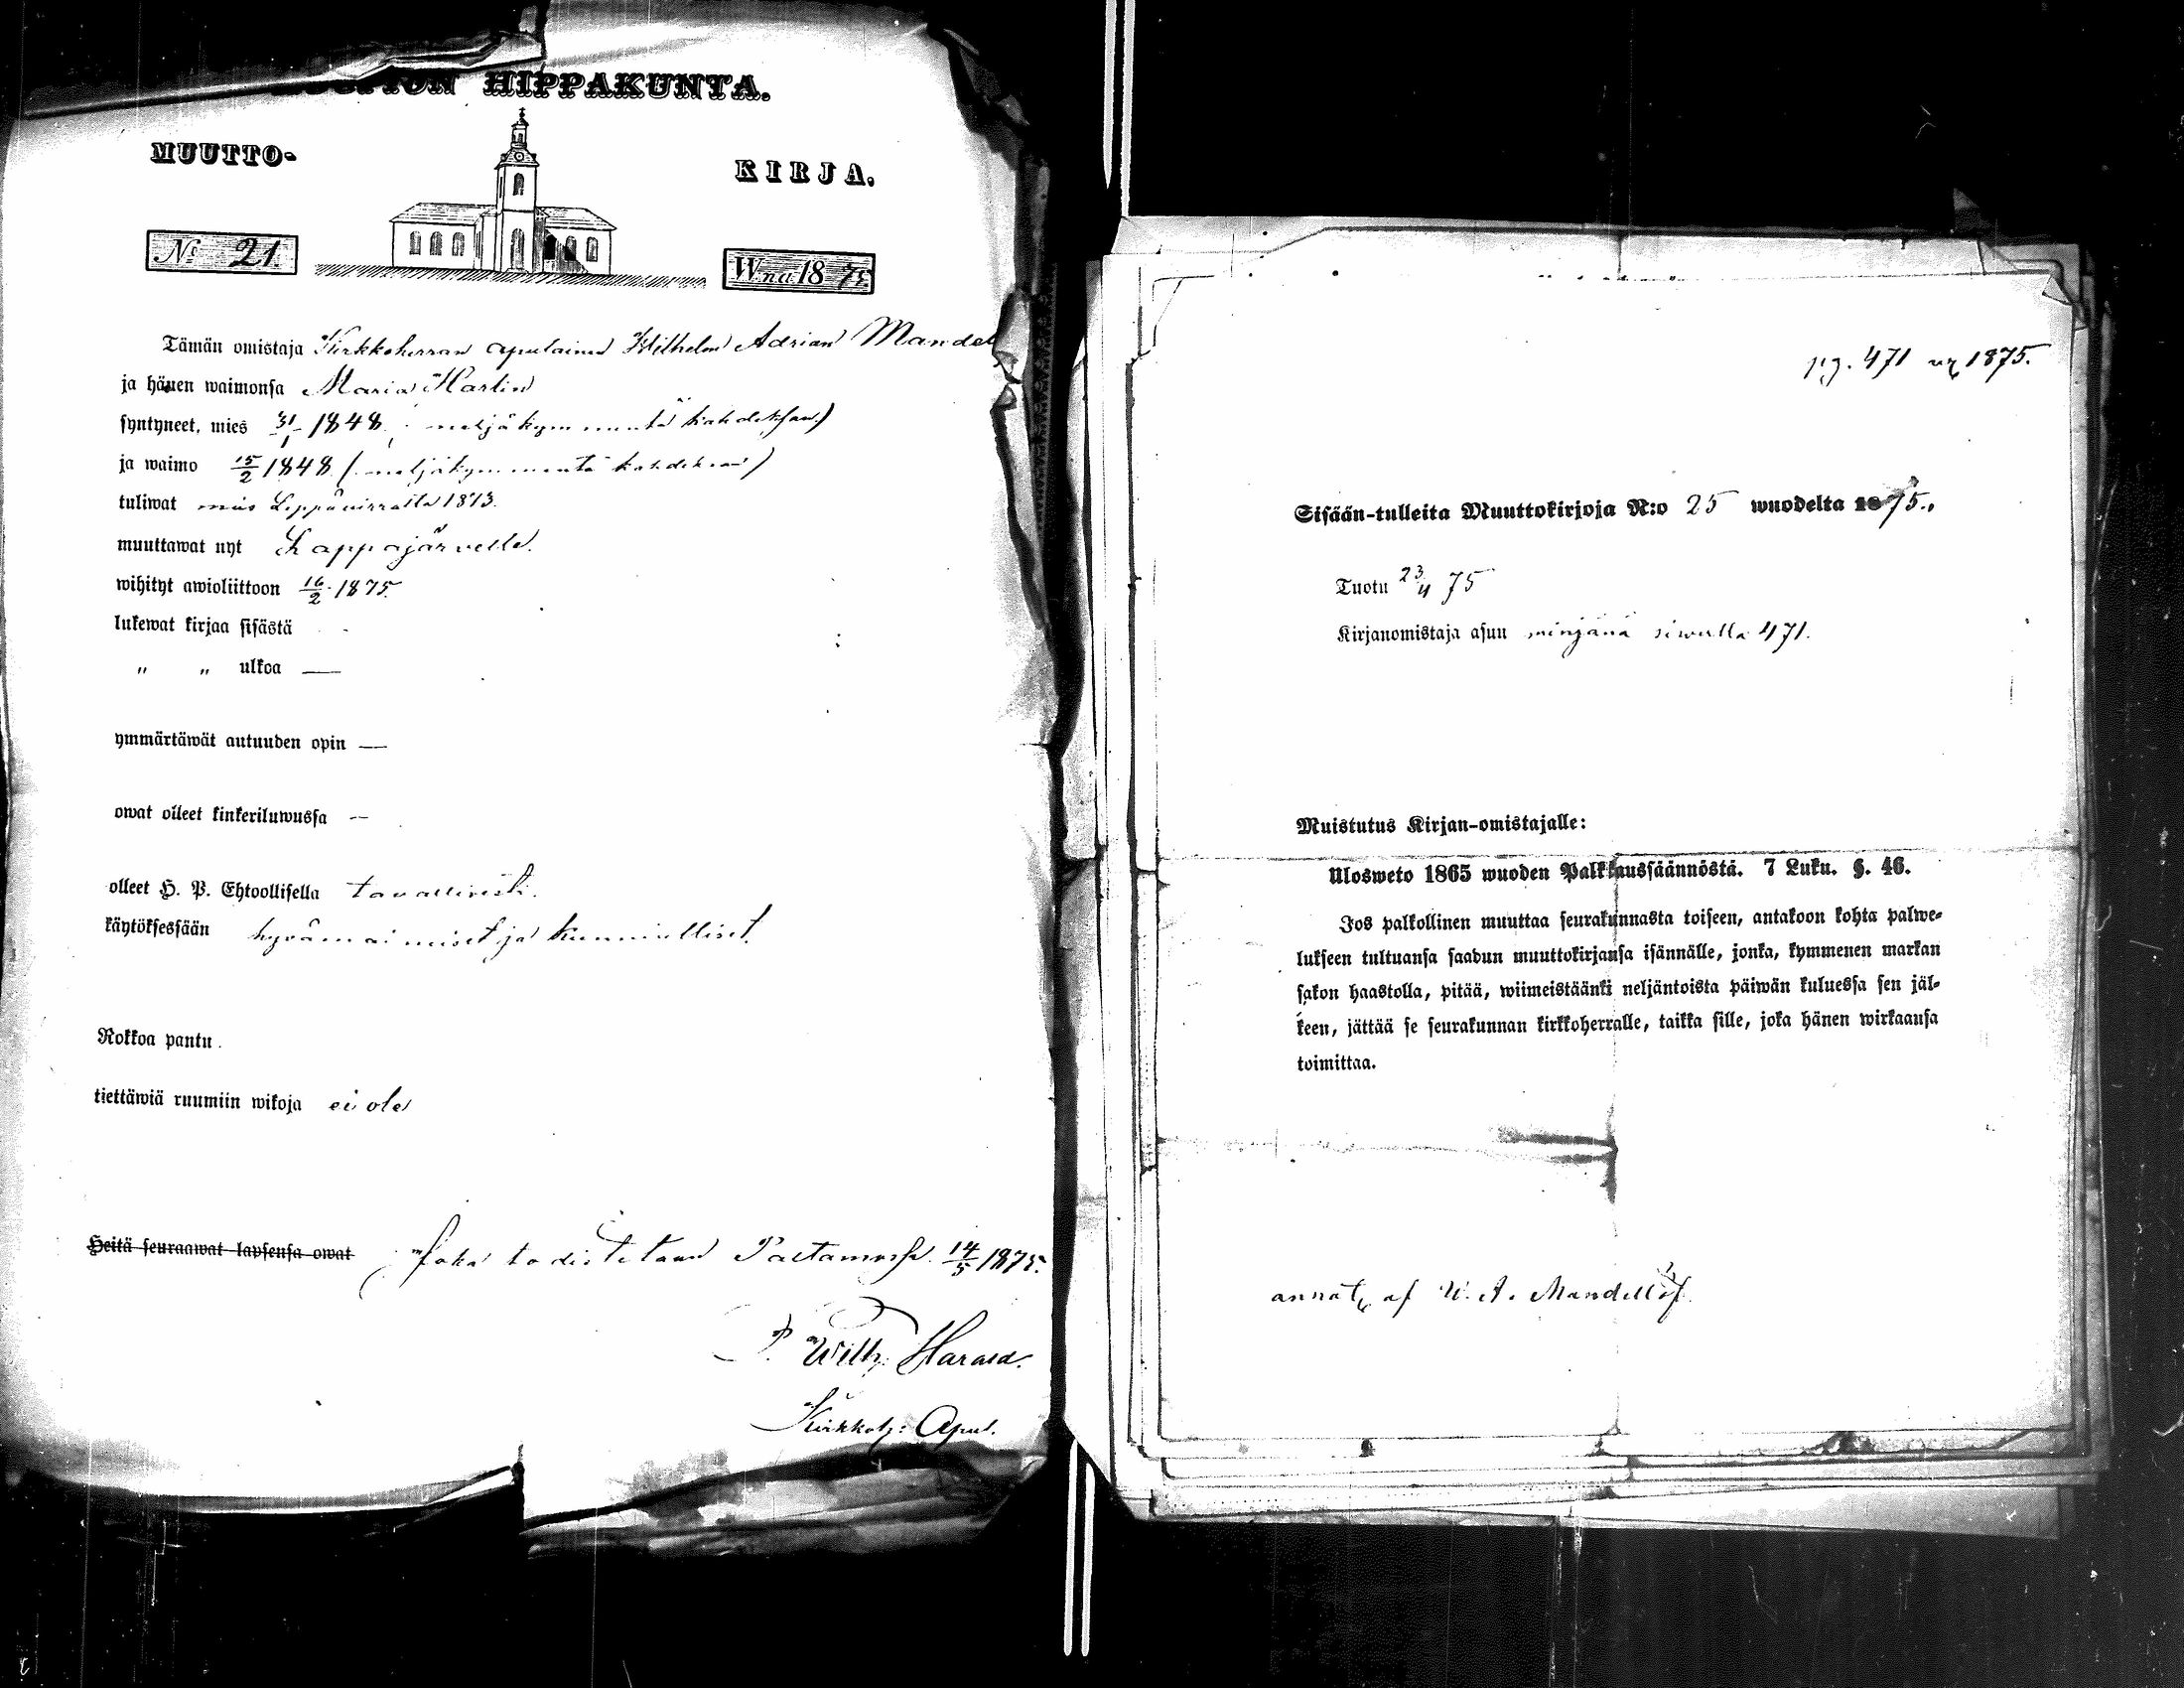 HIPPAKUNTA.
MUUTTO-
KIRJA.
No 21.
W.na 18 75.
Tämän omistaja Kirkkoherran apulainen Wilhelm Adrian Mandel
ja hänen waimonsa Maria Harlin
syntyneet, mies 31/1 1848. neljäkymmentä kahdeksan)
ja waimo 15/2 1848 (neljäkymmentä kahdeksan)
tuliwat mies Leppävirralta 1873.
muuttawat nyt Lappajärvelle.
wihityt awioliittoon 16/2 1875.
lukewat kirjaa sisästä -
" " ulkoa —
ymmärtäwät autuuden opin —
owat olleet kinkeriluwussa —
olleet H. P. Ehtoollisella tavallisesti.
käytöksessään hyvämaineiset ja kunnialliset.
Rokkoa pantu.
tiettäwiä ruumiin wikoja ei ole
Heitä seuraawat lapsensa owat Joka todistetaan Paltamossa 14/5 1875.
P. Wilh.
Kirkkoh: Apul.
pg. 471 1875.
Sisään-tulleita Muuttokirjoja N:o 25 wuodelta 1875.,
Tuotu 23/4 75
Kirjanomistaja asuu sivulla 471.
Muistutus Kirjan-omistajalle:
Ulosweto 1865 wuoden Palkkaussäännöstä. 7 Luku. §. 46.
Jos palkollinen muuttaa seurakunnasta toiseen, antakoon kohta palwe-
lukseen tultuansa saadun muuttokirjansa isännälle, jonka, kymmenen markan
sakon haastolla, pitää, wiimeistäänki neljäntoista päiwän kuluessa sen jäl-
keen, jättää se seurakunnan kirkkoherralle, taikka sille, joka hänen wirkaansa
toimittaa.
annot. af W. A. Mandellöf